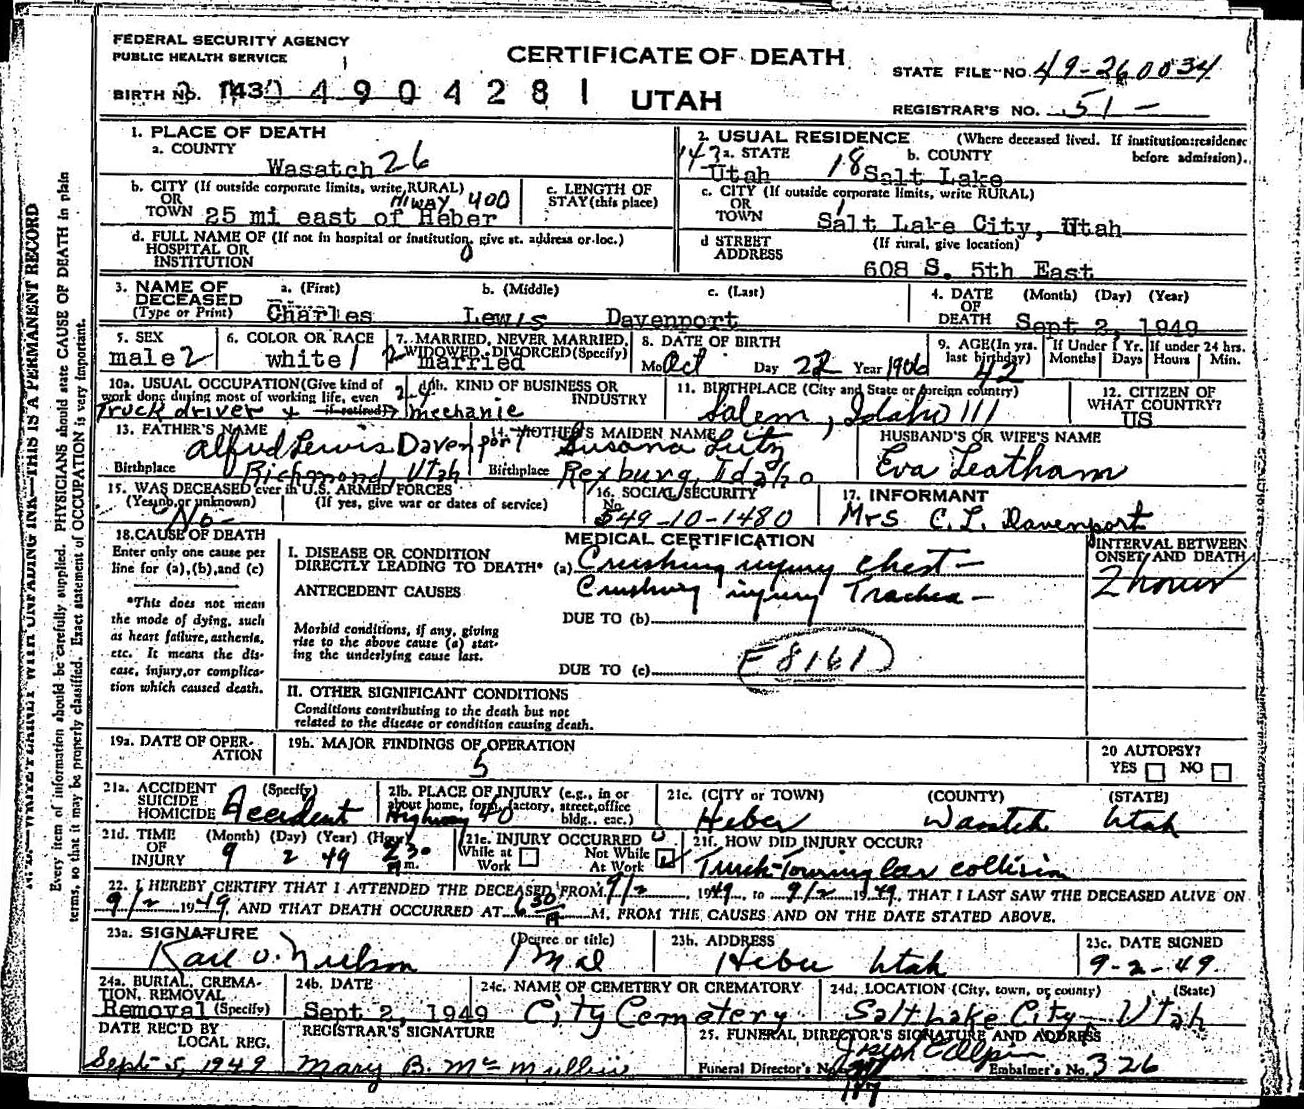 FEDERAL SECURITY AGENCY
PUBLIC HEALTH SERVICE
CERTIFICATE OF DEATH
STATE FILE NO. 49-260034
BIRTH NO. 1430 4904281 UTAH
REGISTRAR'S NO. 51-
1. PLACE OF DEATH
a. COUNTY
Wasatch 26
2. USUAL RESIDENCE (Where deceased lived. If institution: residence before admission).
143 a. STATE b. COUNTY
Utah 18 Salt Lake
b. CITY (If outside corporate limits, write RURAL)
OR
TOWN
HIWAY 400
25 mi east of Heber
c. LENGTH OF
STAY (this place)
c. CITY (If outside corporate limits, write RURAL)
OR
TOWN
Salt Lake City, Utah
d. FULL NAME OF (If not in hospital or institution, give st. address or loc.)
HOSPITAL OR
INSTITUTION
0
d STREET (If rural, give location)
ADDRESS
608 S. 5th East
3. NAME OF a. (First) b. (Middle) c. (Last)
DECEASED
(Type or Print) Charles Lewis Davenport
4. DATE (Month) (Day) (Year)
OF
DEATH Sept 2, 1949
5. SEX
male 2
6. COLOR OR RACE
white 1
7. MARRIED, NEVER MARRIED,
WIDOWED, DIVORCED (Specify)
2 married
8. DATE OF BIRTH
Mo Oct Day 22 Year 1906
9. AGE (In yrs. last birthday) If Under 1 Yr. If under 24 hrs.
42 Months Days Hours Min.
10a. USUAL OCCUPATION (Give kind of
work done during most of working life, even
if retired)
Truck driver +
10b. KIND OF BUSINESS OR
INDUSTRY
mechanic
11. BIRTHPLACE (City and State or foreign country)
Salem, Idaho 111
12. CITIZEN OF
WHAT COUNTRY?
US
13. FATHER'S NAME
Alfred Lewis Davenport
Birthplace Richmond, Utah
14. MOTHER'S MAIDEN NAME
Susana Lutz
Birthplace Rexburg, Idaho
HUSBAND'S OR WIFE'S NAME
Eva Leatham
15. WAS DECEASED ever in U.S. ARMED FORCES
(Yes, no or unknown) (If yes, give war or dates of service)
No-
16. SOCIAL SECURITY
No.
549-10-1480
17. INFORMANT
Mrs C. L. Davenport
18. CAUSE OF DEATH
Enter only one cause per
line for (a), (b), and (c)
*This does not mean
the mode of dying, such
as heart failure, asthenia,
etc. It means the dis-
ease, injury, or complica-
tion which caused death.
MEDICAL CERTIFICATION
I. DISEASE OR CONDITION
DIRECTLY LEADING TO DEATH* (a) Crushing injury chest-
ANTECEDENT CAUSES Crushing injury Trachea-
DUE TO (b)
Morbid conditions, if any, giving
rise to the above cause (a) stat-
ing the underlying cause last.
DUE TO (c) E8161
II. OTHER SIGNIFICANT CONDITIONS
Conditions contributing to the death but not
related to the disease or condition causing death.
INTERVAL BETWEEN
ONSET AND DEATH
2 hours
19a. DATE OF OPER-
ATION
19b. MAJOR FINDINGS OF OPERATION
5
20 AUTOPSY?
YES NO
21a. ACCIDENT (Specify)
SUICIDE
HOMICIDE Accident
21b. PLACE OF INJURY (e.g., in or
about home, farm, factory, street, office
bldg., etc.)
Highway 40
21c. (CITY or TOWN) (COUNTY) (STATE)
Heber Wasatch Utah
21d. TIME (Month) (Day) (Year) (Hour)
OF
INJURY 9 2 49 m.
21e. INJURY OCCURRED
While at Work Not While At Work
21f. HOW DID INJURY OCCUR?
Truck-Touring Car collision
22. I HEREBY CERTIFY THAT I ATTENDED THE DECEASED FROM 9/2 1949, to 9/2 1949, THAT I LAST SAW THE DECEASED ALIVE ON
9/2 1949, AND THAT DEATH OCCURRED AT 6 30 A M. FROM THE CAUSES AND ON THE DATE STATED ABOVE.
23a. SIGNATURE (Degree or title)
Karl O. Nielson Md
23b. ADDRESS
Heber Utah
23c. DATE SIGNED
9-2-49.
24a. BURIAL, CREMA-
TION, REMOVAL
Removal (Specify)
24b. DATE
Sept 2, 1949
24c. NAME OF CEMETERY OR CREMATORY
City Cemetery
24d. LOCATION (City, town, or county) (State)
Salt Lake City Utah
DATE REC'D BY
LOCAL REG.
Sept 5, 1949
REGISTRAR'S SIGNATURE
Mary B. McMullin
25. FUNERAL DIRECTOR'S SIGNATURE AND ADDRESS
Joseph
Funeral Director's No. Embalmer's No. 326
187
WRITE PLAINLY WITH UNFADING INK—THIS IS A PERMANENT RECORD
Every item of information should be carefully supplied. PHYSICIANS should state CAUSE OF DEATH in plain
terms, so that it may be properly classified. Exact statement of OCCUPATION is very important.